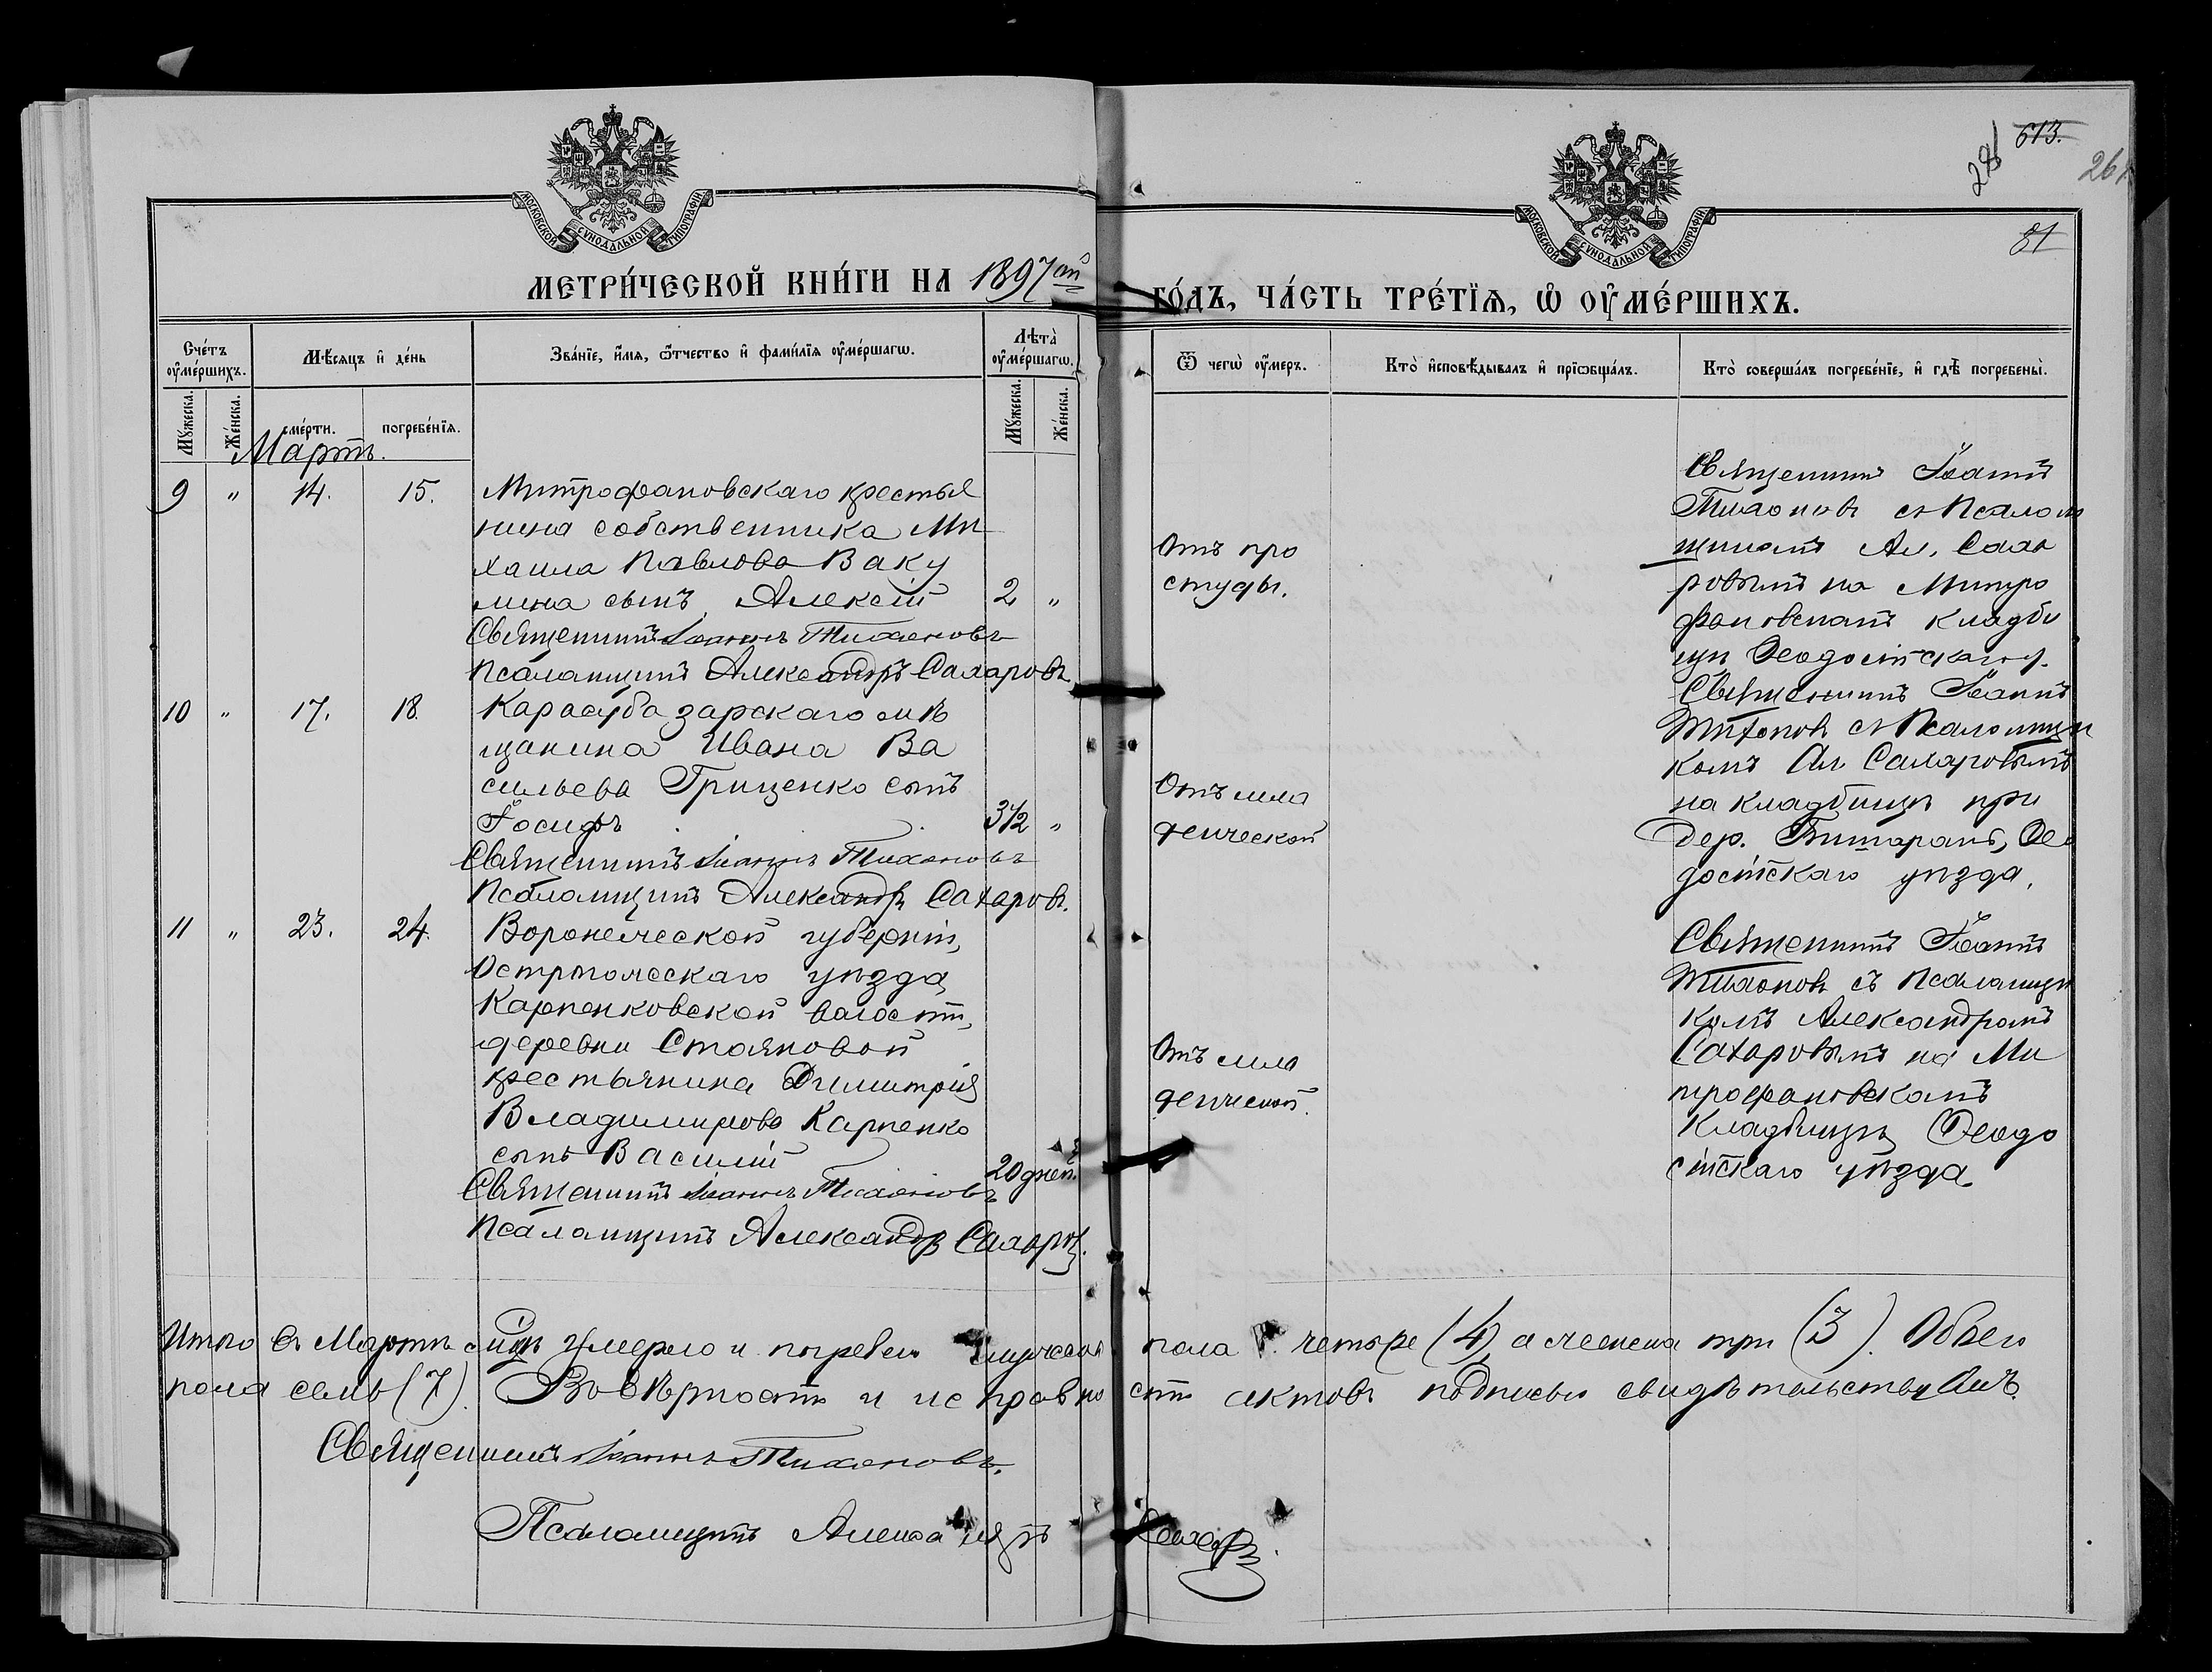 613.
281
261
31
МОСКОВСКОЙ СѴНОДАЛЬНОЙ ТИПОГРАФІИ
МОСКОВСКОЙ СѴНОДАЛЬНОЙ ТИПОГРАФІИ
МЕТРИ́ЧЕСКОЙ КНИ́ГИ НА 1897ой
ГО́ДЪ, ЧА́СТЬ ТРЕ́ТЇѦ, Ѡ҆ ОУ҆МЕ́РШИХЪ.
Сче́тъ оу҆ме́ршихъ.
Мѣ́сяцъ и҆ де́нь
Зва́нїе, и҆́мя, ѻ҆́тчество и҆ фами́лїя оу҆ме́ршагѡ.
Лѣта̀ оу҆ме́ршагѡ.
Ѿ чегѡ̀ оу҆́меръ.
Кто̀ и҆сповѣ́дывалъ и҆ прїѻбща́лъ.
Кто̀ соверша́лъ погребе́нїе, и҆ гдѣ̀ погребены̀.
Мꙋ́жеска.
Же́нска.
сме́рти.
погребе́нїя.
Мꙋ́жеска.
Же́нска.
Мартъ.
9 " 14. 15.
Митрофановскаго крестья
нина собственника Ми
хаила Павлова Ваку
лина сынъ Алексій 2 "
Священникъ Іоаннъ Тихоновъ
Псаломщикъ Александръ Сахаровъ
Отъ про
студы.
Священникъ Іоаннъ
Тихоновъ съ Псалом
щикомъ Ал. Саха
ровымъ на Митро
фановскомъ кладби
щѣ Ѳеодосійскаго у.
10 " 17. 18.
Карасубазарскаго мѣ
щанина Ивана Ва
сильева Гриценко сынъ
Іосифъ 3 1/2 "
Священникъ Іоаннъ Тихоновъ
Псаломщикъ Александръ Сахаровъ.
Отъ мла
денческой
Священникъ Іоаннъ
Тихоновъ съ Псаломщи
комъ Ал. Сахаровымъ
на кладбищѣ при
дер. Ѳео
досійскаго уѣзда.
11 " 23. 24.
Воронежской губерніи,
Острогожскаго уѣзда
Карпенковской волости,
деревни Стояновой
крестьянина Димитрія
Владимирова Карпенко
сынъ Василій 20 дней.
Священникъ Іоаннъ Тихоновъ
Псаломщикъ Александръ Сахаровъ.
Отъ мла
денческой.
Священникъ Іоаннъ
Тихоновъ съ Псаломщи
комъ Александромъ
Сахаровымъ на Ми
трофановскомъ
Кладбищѣ Ѳеодо
сійскаго уѣзда.
Итого въ Мартѣ м-цѣ умерло и погребено мужескаго пола четыре (4), а женска три (3). Обоего
пола семь (7). Въ вѣрности и исправности актовъ подписью свидѣтельствуемъ.
Священникъ Іоаннъ Тихоновъ.
Псаломщикъ Александръ Сахаровъ.